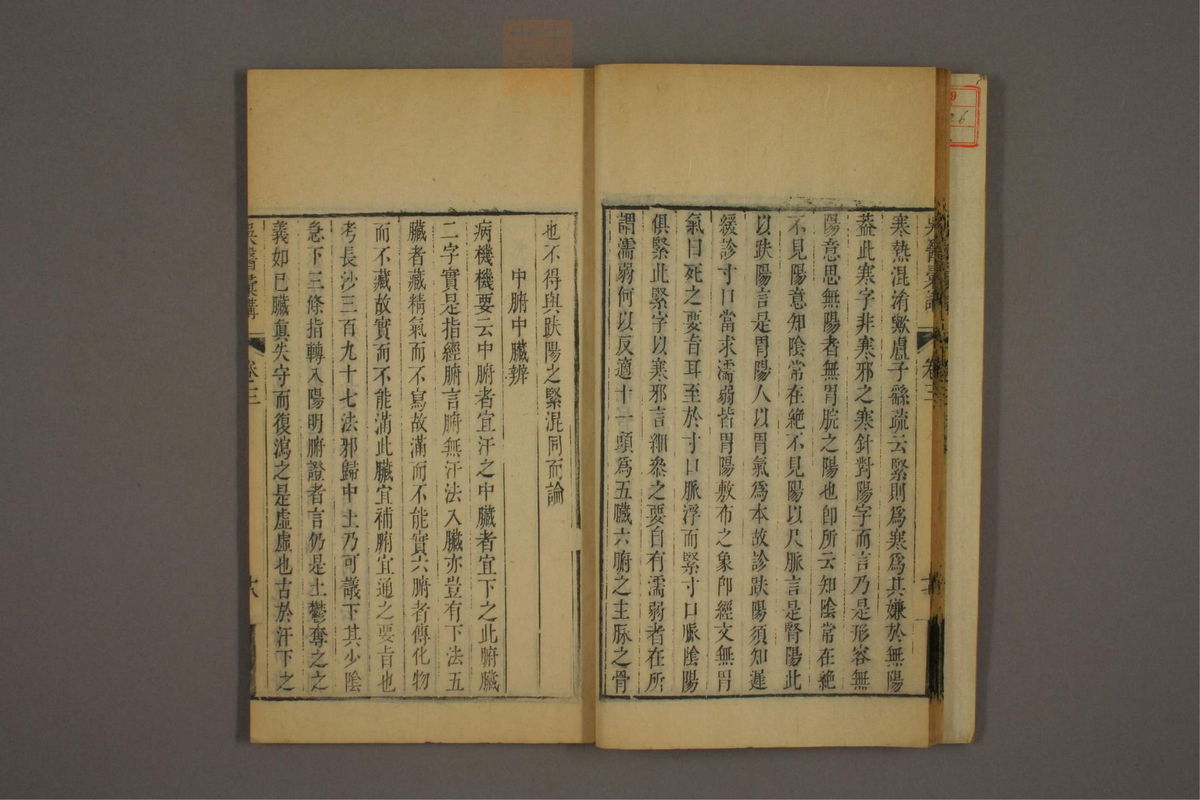 寒熱混淆歟盧子繇疏云緊則爲寒爲其嫌於無陽
葢此寒字非寒邪之寒針對陽字而言乃是形容無
陽意思無陽者無胃脘之陽也卽所云知陰常在絶
不見陽意知陰常在絶不見陽以尺脈言是腎陽此
以趺陽言是胃陽人以胃氣爲本故診趺陽須知遲
緩診寸口當求濡弱皆胃陽敷布之象卽經文無胃
氣曰死之要旨耳至於寸口脈浮而緊寸口脈陰陽
俱緊此緊字以寒邪言細叅之要自有濡弱者在所
謂濡弱何以反適十一頭爲五臟六腑之主脉之骨
也不得與趺陽之緊混同而論
中腑中臟辨
病機機要云中腑者宜汗之中臟者宜下之此腑臟
二字實是指經腑言腑無汗法入臟亦豈有下法五
臟者藏精氣而不寫故滿而不能實六腑者傳化物
而不藏故實而不能滿此臟宜補腑宜通之要旨也
考長沙三百九十七法邪歸中土乃可議下其少陰
急下三條指轉入陽明腑證者言仍是土鬱奪之之
義如已臟眞失守而復瀉之是虛虛也古於汗下之
吳醫彙講
卷三